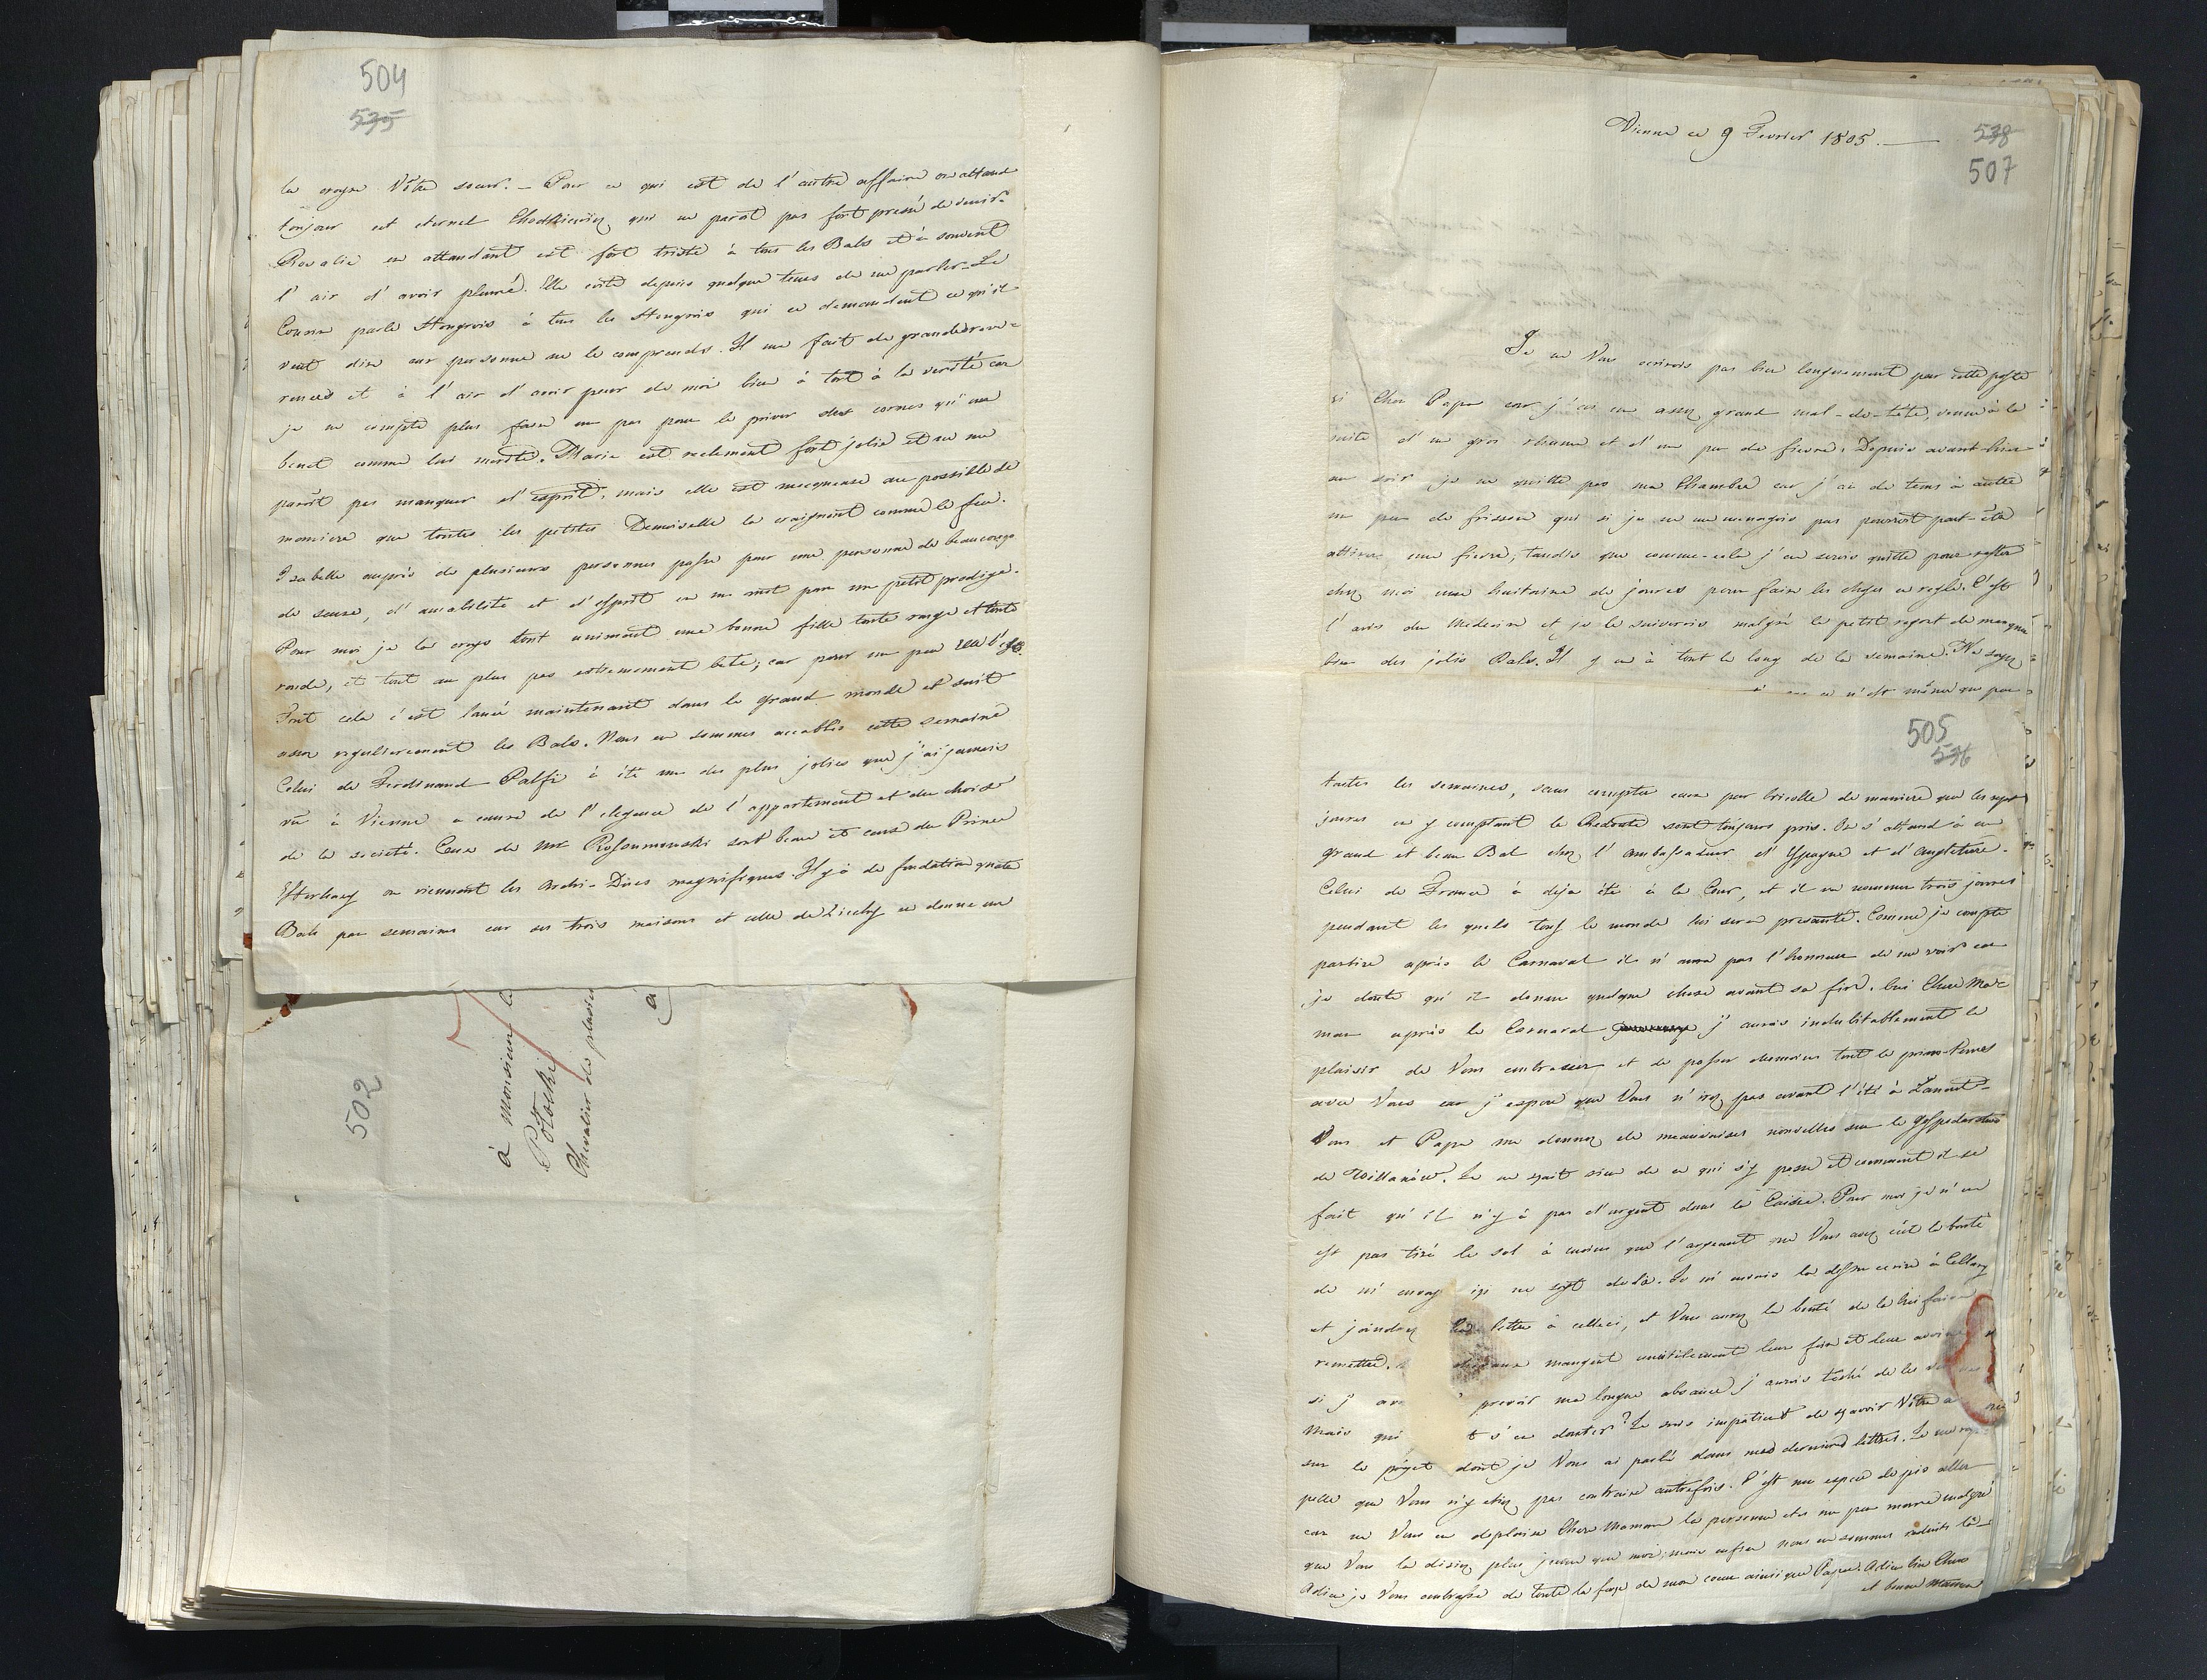 504
535
la croyre Vôtre soeur. – Pour ce qui est de l'autre affaire on attend
toujour cet eternel Chodkiewicz qui ne parait pas fort pressé de venir.
Rosalie en attendant est fort triste à tous les Bals et à souvent
l'air d'avoir pleuré. Elle évite depuis quelque tems de me parler. Le
Cousin parle Hongrois à tous les Hongrois qui ce demandent ce qu'il
veut dire car personne ne le comprends. Il me fait de grande reve-
rences et à l'air d'avoir peur de moi bien à tort à la verité car
je ne compte plus faire un pas pour le priver des cornes qu'un
benet comme lui merite. Marie est reelement fort jolie et ne me
parôit pas manquer d'esprit, mais elle est mocqueuse au possible de
maniere que toutes les petites Demoiselle la craignent comme le feu.
Isabelle auprès de plusieurs personnes passe pour une personne de beaucoup
de sense, d'amabilité et d'esprit en un mot pour un petit prodige.
Pour moi je la croys tout uniment une bonne fille toute rouge et toute
ronde, et tout au plus pas extremement bete; car pour un peu elle l'est.
Tout cela c'est lancé maintenant dans le grand monde et suit
assez regulierement les Bals. Nous en sommes accablés cette semaine
Celui de Ferdinand Palfi à été un des plus jolies que j'ai jamais
vû à Vienne a cause de l'elegance de l'appartement et du choix
de la societé. Ceux de Mr Rosoumowski sont beau et ceux du Prince
Esterhazy ou viennent les Archi-Ducs magnifiques. Il y à de fondation quatre
Bals par semaine car ses trois maisons et celle de Zicchy en donne un
502
à Monsieur le
Potocki
Chevalier de plusieu
à
Vienne ce 9 Fevrier 1805. —
538
507
Je ne Vous ecrirois pas bien longuement par cette poste
ci Cher Papa car j'ai un assez grand mal-de-tête, venu à la
suite d'un gros rhume et d'un peu de fievre. Depuis avant-hier
au soir je ne quitte pas ma Chambre car j'ai de tems à autre
un peu de frisson qui si je ne me menagois pas pourroit peut-être
attirer une fievre; tandis que comme-cela j'en serois quitte pour rester
chez moi une huitaine de joures pour faire les choses en regle. C'est
l'avis du Medecin et je le suiverois malgré le petit regret de manquer
bien des jolis Bals. Il y en à tout le long de la semaine. Ne soyez
ce n'est même que pour
505
536
toutes les semaines, sans compter ceux par bricolle de maniere que les sept
joures en y comptant la Redoute sont toujours pris. On s'attend à un
grand et beau Bal chez l'ambassadeur d'Espagne et d'Angleterre.
Celui de France à deja été à la Cour, et il va nommer trois joures
pendant les quels tous le monde lui sera presanté. Comme je compte
partire après le Carnaval il n'aura pas l'honneur de me voir car
je doute qu'il donne quelque chose avant sa fin. Oui Chere Ma-
man après le Carnaval j'aurois indubitablement le
plaisir de Vous embrasser et de passer dumoins tout le prin-temes
avec Vous car j'espere que Vous n'irez pas avant l'été à Lancut-
Vous et Papa me donnez de mauvaises nouvelles sur le Gospodarstwo
de Willanów. Je ne sçait rien de ce qui s'y passe et comment il se
fait qu'il n'y à pas d'argent dans la Caisse. Pour moi je n'en
est pas tiré le sol à moins que l'argeant que Vous avez eût la bonté
de m'envoy ici ne soyt de là. Je m'envois la dessu ecrire à Cellary
et joindrez letter à celleci, et Vous aurez la bonté de la lui faire
remettre. chevaux mangent inutilement leur foin et leur avoine
si j' av prevoir ma longue absance j'aurois taché de les
Mais qui t s'en douter? Je suis impatient de sçavoir Vôtre a
sur le projet dont je Vous ai parlé dans mes dernieres lettres. Je me rap-
pelle que Vous n'y etiez pas contraire autrefois. C'est une espece de pis aller
car ne Vous en deplaise Chere Maman la personne etes un peu meure malgré
que Vous la disiez plus jeune que moi; mais enfin nous en sommes reduits là-
Adieu je Vous embrasse de toute la force de mon coeur ainsi que Papa. Adieu bien Chere
et bonne Maman